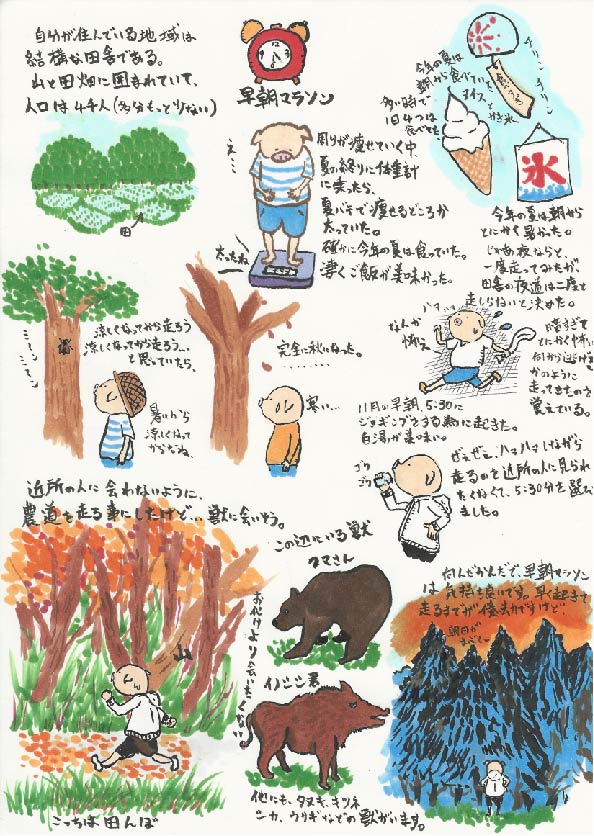 自分が住んでいる地域は
結構な田舎である。
山と田畑に囲まれていて、
人口は4千人(多分もっと少ない)
田
早朝マラソン
え…
太ったね
周りが痩せていく中、
夏の終りに体重計
に乗ったら、
夏バテで痩せるどころか
太っていた。
確かに今年の夏は食っていた。
凄くご飯が美味かった。
今年の夏は
朝から食べていた
アイスとかき氷
多い時で
1日4つは
食べてた
チリン チリン
氷
今年の夏は朝から
とにかく暑かった。
じゃあ夜ならと
一度走ってみたが、
田舎の夜道は二度と
走らないと決めた。
ミーンミーン
涼しくなってから走ろう
涼しくなってから走ろう…
と思っていたら、
暑いから
涼しくなって
からだね、
完全に秋になった。
………
寒い…
なんか
怖え
ハァ
暗すぎて
とにかく怖い
何から逃げる
かのように
走ってきたのを
覚えている。
11月の早朝、5:30に
ジョギングをする為に起きた。
白湯が美味い。
ゴク
ゴク
ぜぇぜぇ、ハァハァしながら
走るのを近所の人に見られ
たくなくて、5:30分を選び
ました。
近所の人に会わないように、
農道を走る事にしたけど…獣に会いそう。
山
こっちは田んぼ
この辺にいる獣
クマさん
お化けより会いたくない
イノシシ君
他にも、タヌキ、キツネ
シカ、ウサギなどの獣がいます。
なんだかんだで、早朝マラソン
は気持ち良いです。早く起きて
走るまでが億劫ですけど。
朝日が